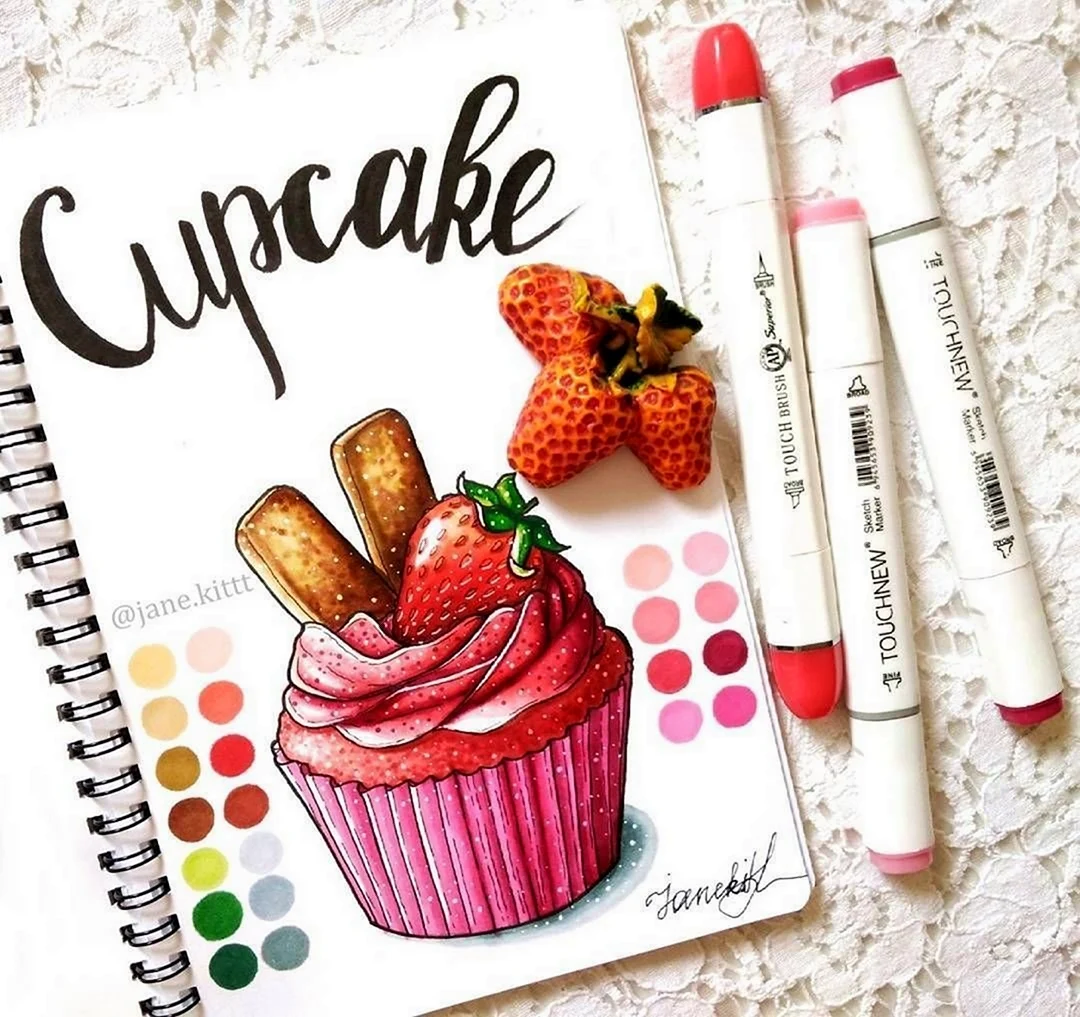 Cupcake
@jane.kittt
janekitt
TOUCH BRUSH Superior®
BRUSH
TOUCHNEW® Sketch Marker
BROAD
FINE
TOUCHNEW® Sketch Marker